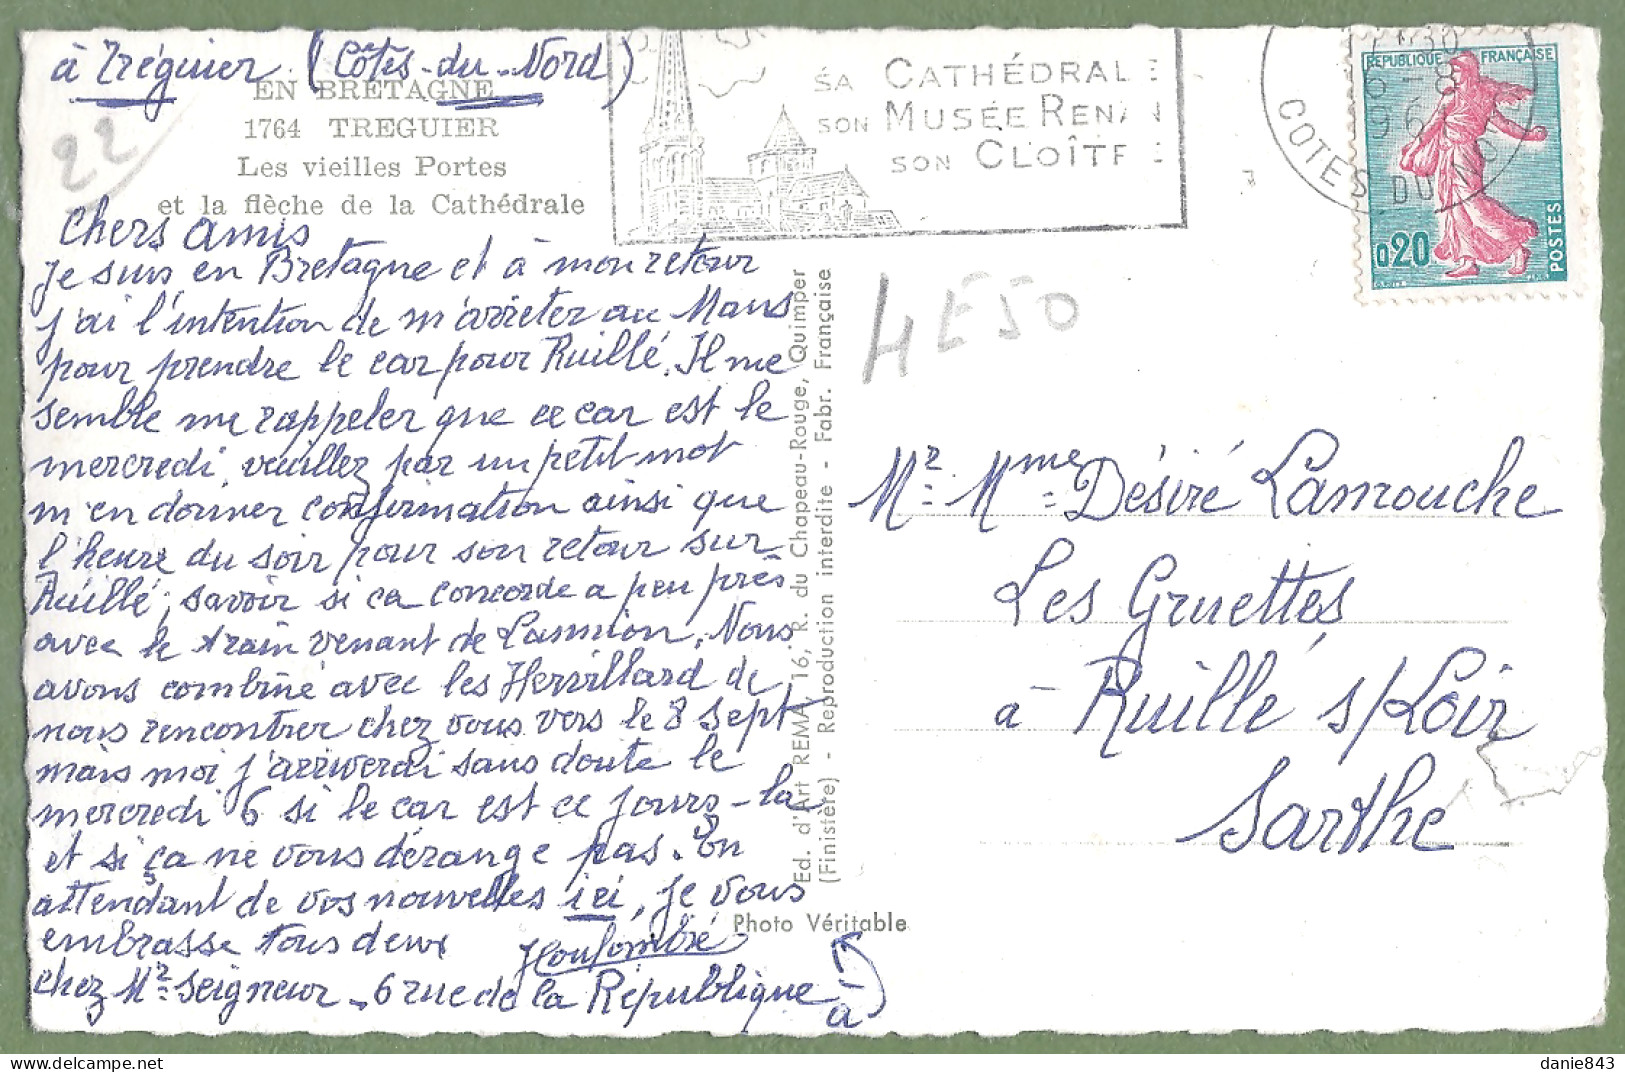 à Tréguier (Côtes-du-Nord)
EN BRETAGNE
1764 TREGUIER
Les vieilles Portes
et la flèche de la Cathédrale
22
SA CATHÉDRALE
SON MUSÉE RENAN
SON CLOÎTRE
COTES DU NORD
REPUBLIQUE FRANÇAISE
0,20
POSTES
4E50
chers amis
Je suis en Bretagne et à mon retour
j'ai l'intention de m'arrêter au Mans
pour prendre le car pour Ruillé. Il me
semble me rappeler que ce car est le
mercredi, veuillez par un petit mot
m'en donner confirmation ainsi que
l'heure du soir pour son retour sur
Ruillé, savoir si ça concorde a peu près
avec le train venant de Lannion. Nous
avons combiné avec les Hervillard de
nous rencontrer chez vous vers le 8 sept
mais moi j'arriverai sans doute le
mercredi 6 si le car est ce jours-la
et si ça ne vous dérange pas. En
attendant de vos nouvelles ici, je vous
embrasse tous deux
chez Mr Seigneur - 6 rue de la République
à
Ed. d'Art REMA 16, R. du Chapeau-Rouge, Quimper
(Finistère) - Reproduction interdite - Fabr. Française
Photo Véritable
Mr Mme Désiré Lamouche
Les Gruettes
à Ruillé s/Loir
Sarthe
danie843